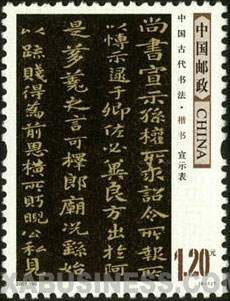 中国邮政 CHINA
中国古代书法·楷书 宣示表
尚書宣示孫權所求詔令所報所
以博示逮于卿佐必冀良方出於阿
是芻蕘之言可擇郎廟況繇始
以疏賤得為前恩橫所盱睨公私見
1.20元